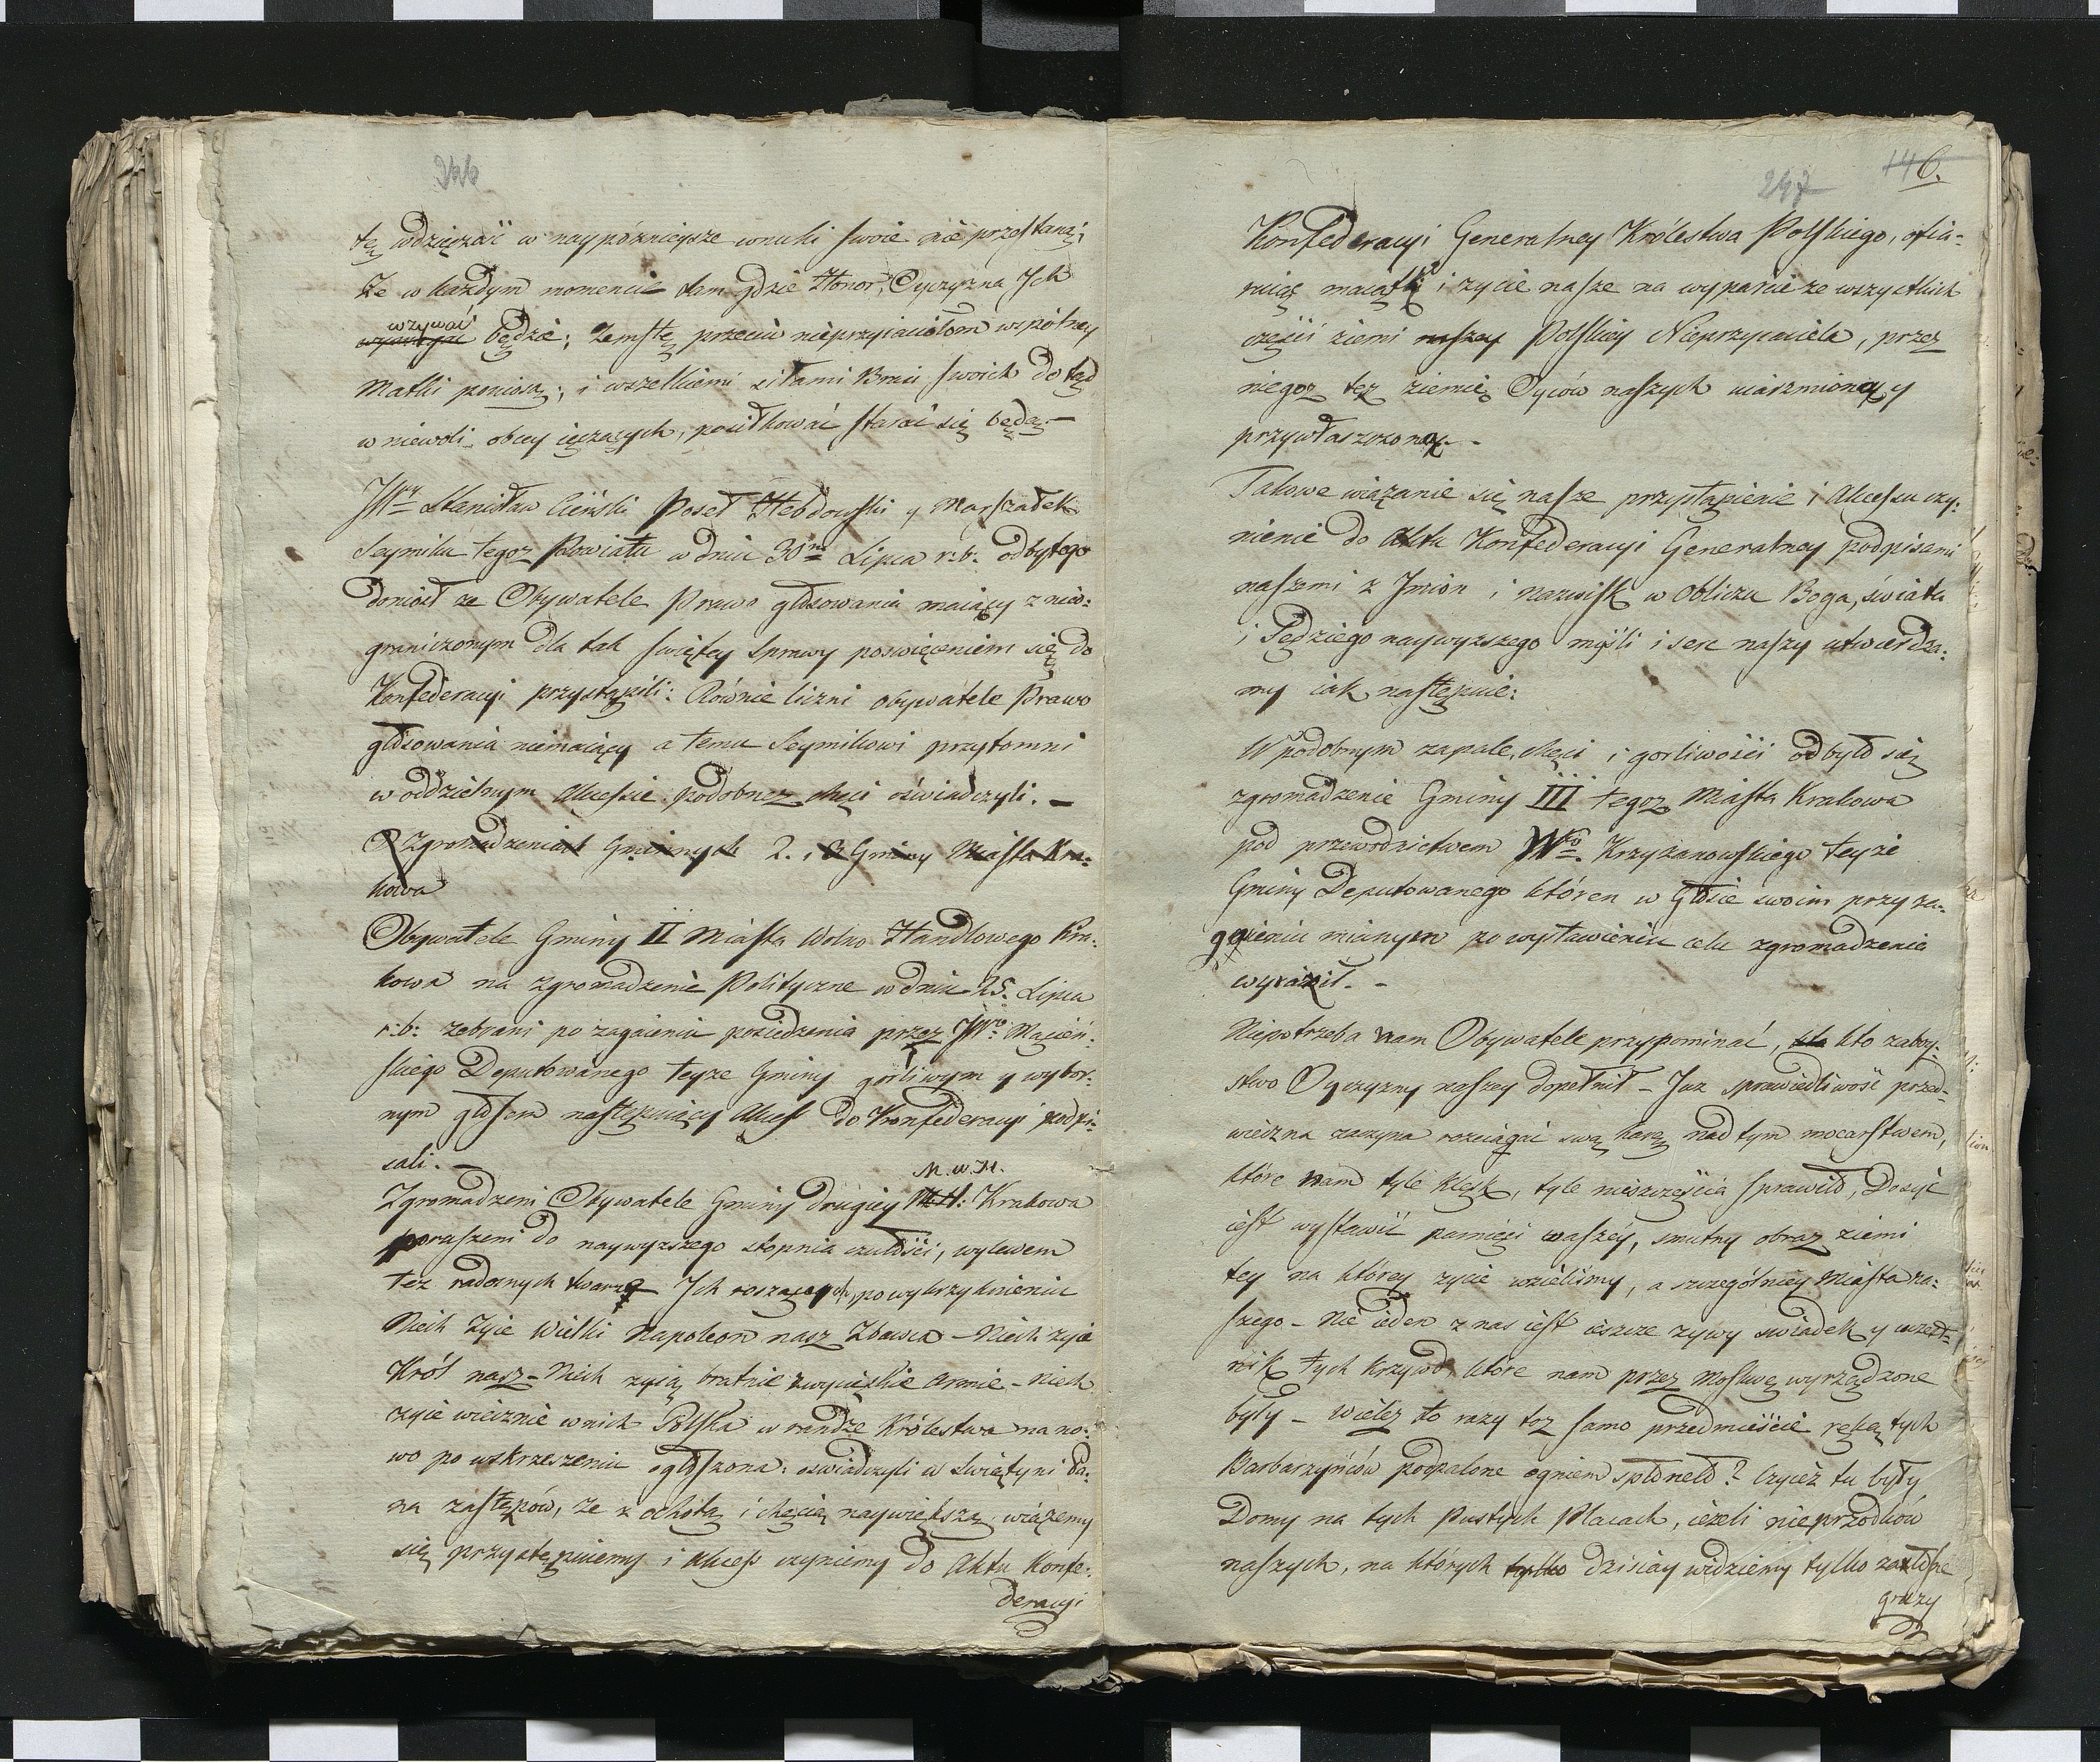 246
tę wdzięczać w naypózniejsze wnuki swoie nie przestaną;
Że w każdym momencie tam gdzie Honor, Oyczyzna Jch
wzywać
będzie; Zemstę przeciw nieprzyiaciołom wspólney
Matki poniosą; i wszelkiemi siłami Braci swoich dotąd
w niewoli obcey ięczących, posiłkować starać się będą. —
JWny Stanisław Cieński Poseł Hebdowski y Marszałek
Seymiku tegoż Powiatu w dniu 30m Lipca r: b: odbytego
doniósł że Obywatele Prawo głosowania maiący z nieo:
graniczonym dla tak świętey Sprawy poswięceniem się do
Konfederacyi przystąpili: Równie liczni obywatele Prawo
głosowania niemaiący a temu Seymikowi przytomni
w oddzielnym Akcessie podobneż chęci oświadczyli. —
O Zgromadzeniach Gminnych 2. i 3 Gminy Miasta Kra:
kowa
Obywatele Gminy II Miasta Wolno Handlowego Kra:
kowa na zgromadzenie Polityczne w dniu 25. Lipca
r: b: zebrani po zagaieniu posiedzenia przez JWgo Mącień:
skiego Deputowanego teyże Gminy gorliwym y wybor:
nym głosem następuiący Akcess do Konfederacyi podpi:
sali. —
M. W. H.
Zgromadzeni Obywatele Gminy drugiey M H: Krakowa
poruszeni do naywyższego stopnia czułości, wylewem
łez radosnych twarze Jch roszących, po wykrzyknieniu
Niech Żyie Wielki Napoleon nasz Zbawca — Niech żyie
Król nasz — Niech żyią bratnie zwycięskie Armie — Niech
żyie wiecznie w nich Polska w randze Królestwa na no:
wo po wskrzeszeniu ogłoszona: oswiadczyli w Swiętyni Pa:
na zastępów, że z ochotą i chęcią naywiększą wiążemy
się przystępuiemy i Akcess czyniemy do Aktu Konfe:
deracyi
247
146.
Konfederacyi Generalney Królestwa Polskiego, ofia:
ruiąc maiątki i życie nasze na wyparcie ze wszystkich
części ziemi naszey Polskiey Nieprzyiaciela, przez
niegoż też ziemię Oyców naszych uiarzmioney y
przywłaszczoney. —
Takowe wiązanie się nasze przystąpienie i Akcesu czy:
nienie do Aktu Konfederacyi Generalney podpisami
naszemi z Jmion i nazwisk w Obliczu Boga, świata
i Sędziego naywyższego myśli i serc naszy utwierdza:
my iak następuie:
W podobnym zapale, chęci i gorliwości odbyło się
zgromadzenie Gminy III tegoż Miasta Krakowa
pod przewodnictwem Wgo. Krzyżanowskiego teyże
Gminy Deputowanego któren w Głosie swoim przy za:
gaieniu mianym po wystawieniu celu zgromadzenia
wyraził. —
Niepotrzeba wam Obywatele przypominać, kto kto zaboy:
stwo Oyczyzny naszey dopełnił — Już sprawiedliwość przed:
wieczna zaczyna rozciągać swą karę nad tym mocarstwem,
które nam tyle klęsk, tyle nieszczęścia sprawiło, Dosyć
iest wystawić pamięci waszéy, smutny obraz ziemi
tey na którey życie wzieliśmy, a szczególniey Miasta na:
szego — Nie ieden z nas iest ieszcze żywy swiadek y uczest:
nik tych krzywd, które nam przez Moskwę wyrządzone
były — Wieleż to razy toż samo przedmieście ręką tych
Barbarzyńców podpalone ogniem spłonęło? Czyież tu były
Domy na tych Pustych Placach, ieżeli nieprzodków
naszych, na których tylko dzisiay widziemy tylko zarosłe
gruzy